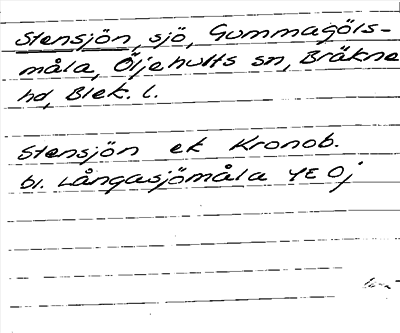 Stensjön, sjö, Gummagöls-
måla, Öljehults sn, Bräkne
hd, Blek. l.
Stensjön ek Kronob.
bl. Långasjömåla 4E Oj